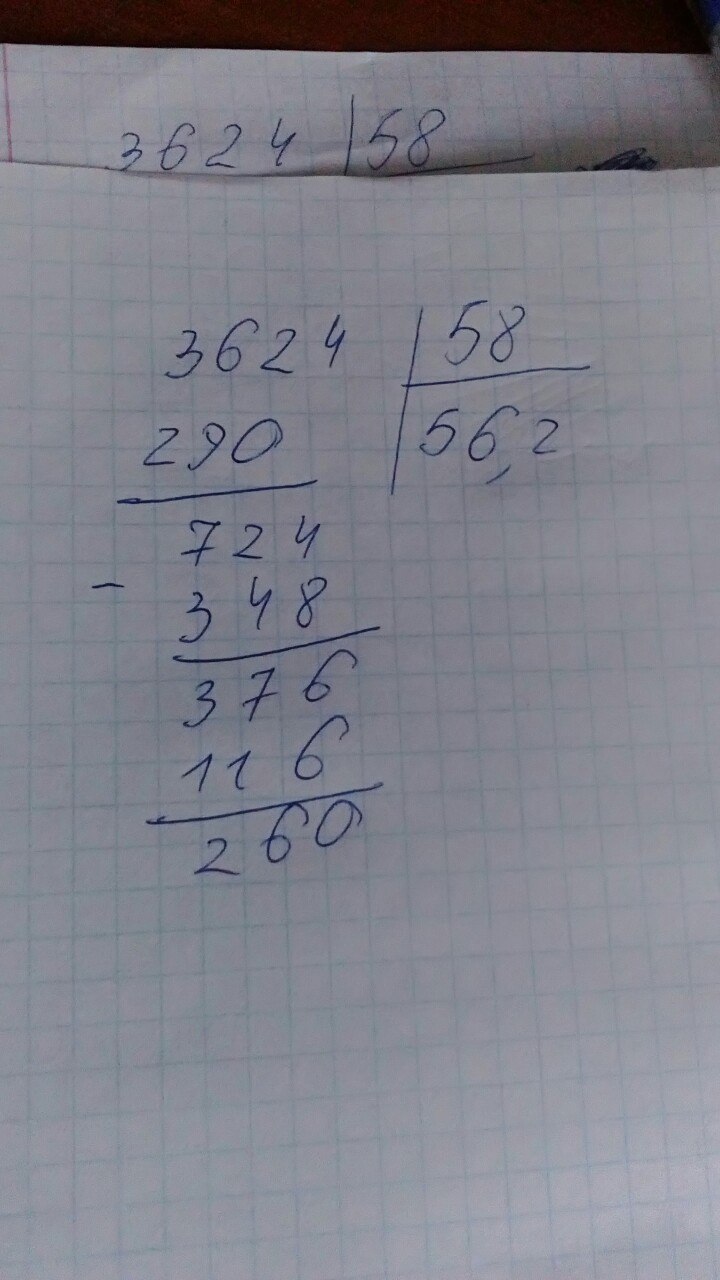 3624 58
3624 58
290 56,2
724
- 348
376
116
260